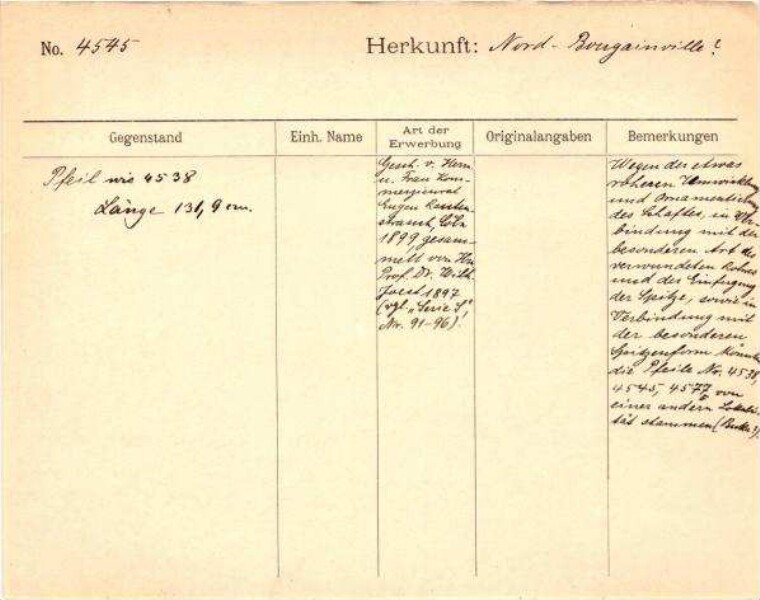 No. 4545
Herkunft: Nord-Bougainville?
Gegenstand
Einh. Name
Art der
Erwerbung
Originalangaben
Bemerkungen
Pfeil wie 4538
Länge 131,9 cm.
Gesch. v. Herrn
u. Frau Kom-
merzienrat
Eugen Rauten-
strauch, Cöln
1899, gesam-
melt von Hn
Prof. Dr. Wilh.
Joest 1897
(vgl. "Serie S",
Nr. 91-96).
Wegen der etwas
roheren Umwicklung
und Ornamentierung
des Schaftes, in Ver-
bindung mit der
besonderen Art des
verwendeten Rohres
und der Einfügung
der Spitze, sowie in
Verbindung mit
der besonderen
Spitzenform könnten
die Pfeile No. 4538,
4545, 4577 von
einer andern Lokali-
tät stammen (Buka?).